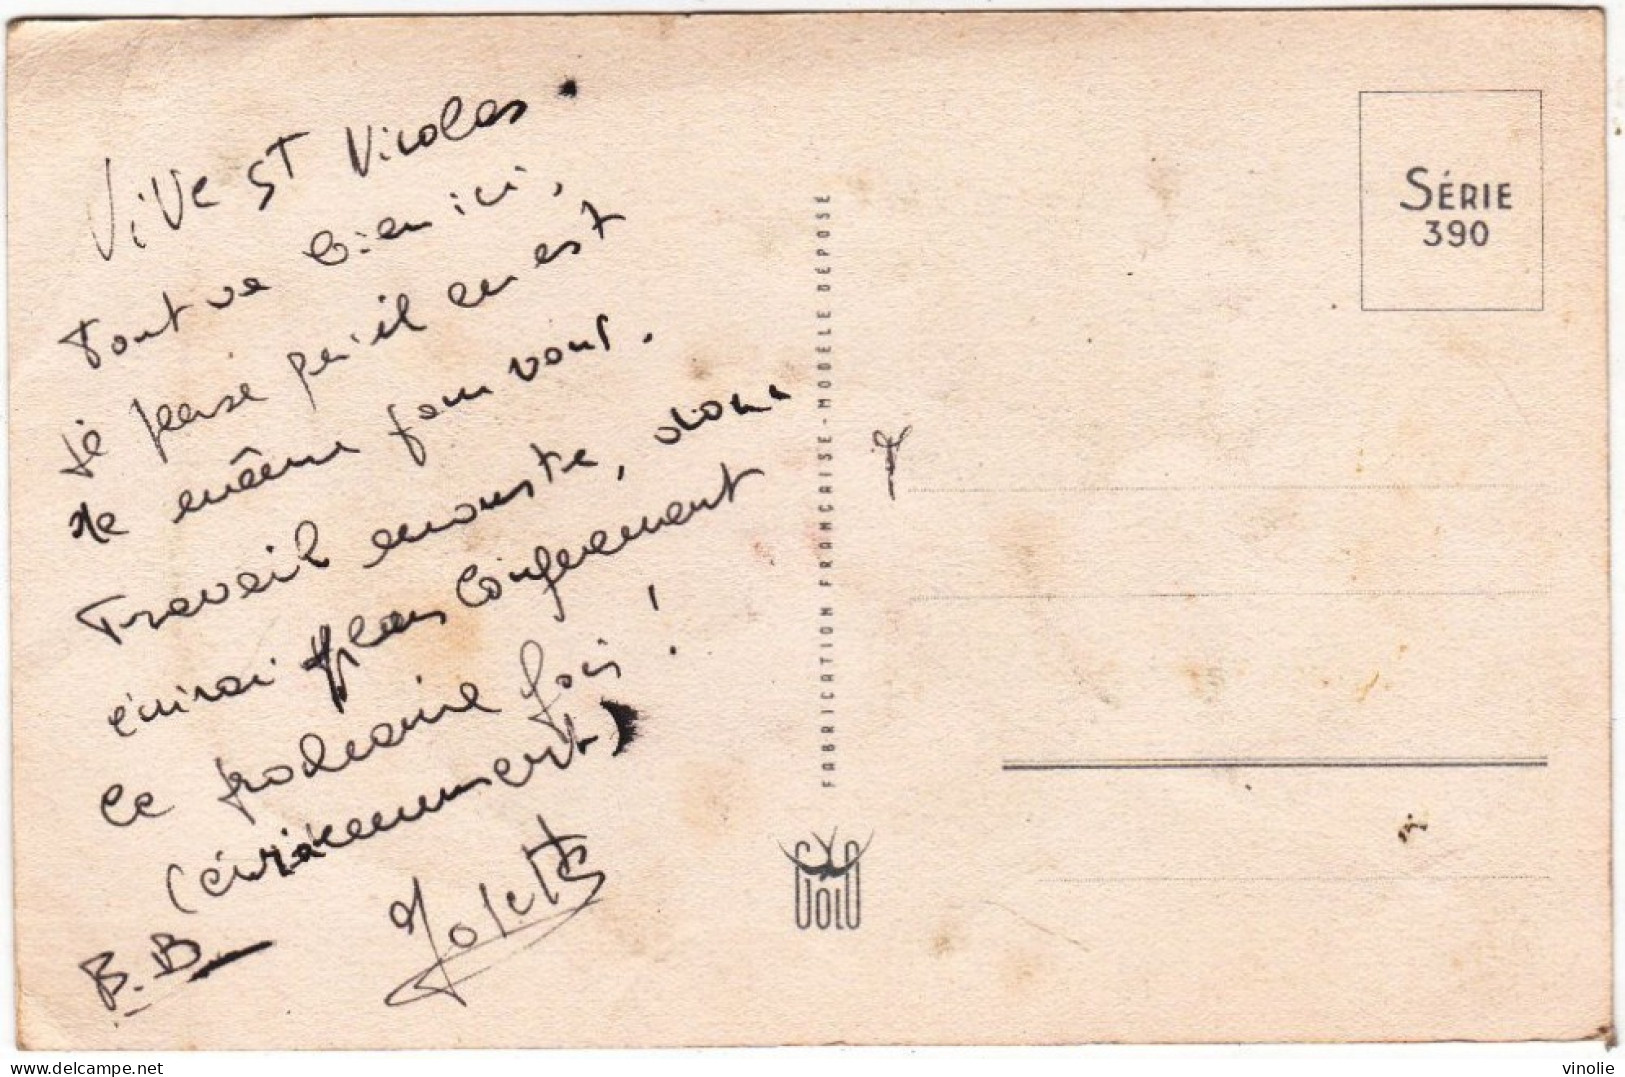 Vive ST Nicolas.
Tout va bien ici,
je pense qu'il en est
de même pour vous.
Travail monstre, donc
écrirai plus longuement
la prochaine fois !
(évidemment)
B.B.
FABRICATION FRANÇAISE - MODÈLE DÉPOSÉ
GOLO
SÉRIE
390
vinolie